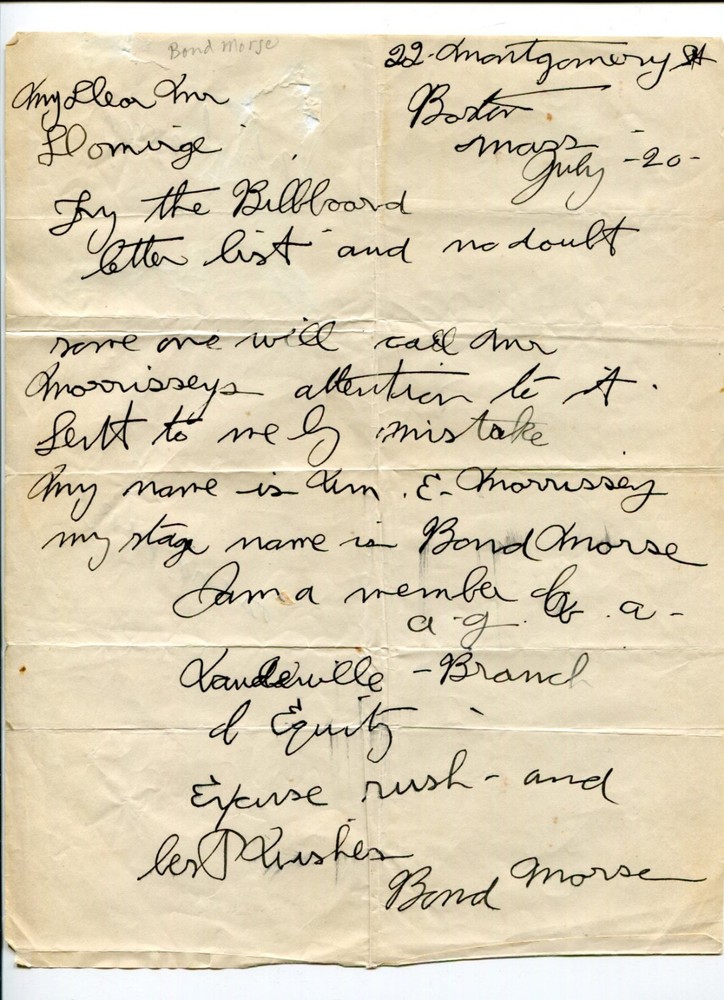 Bond Morse
22 Montgomery St
Boston
Mass
July - 20 -
My Dear Mr
Dominge
Try the Billboard
letter list and no doubt
some one will call Mr
Morrisseys attention to it.
Sent to me by mistake
My name is Wm. E. Morrissey
my stage name is Bond Morse
I am a member of
a. g. v. a -
Vaudeville - Branch
of Equity
Excuse rush - and
best Wishes
Bond Morse